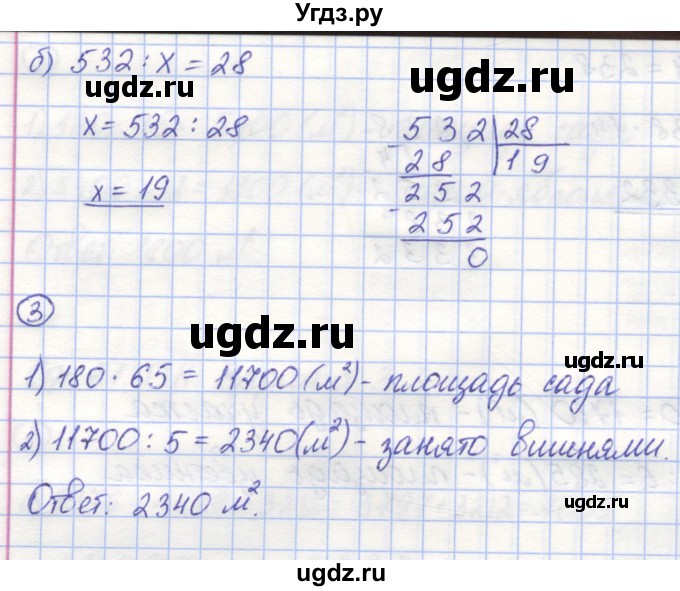 Угдз.ру
б) 532 : x = 28
ugdz.ru
ugdz.ru
x = 532 : 28
532 28
- 28 19
x = 19
252
- 252
0
3
ugdz.ru
ugdz.ru
1) 180 · 65 = 11700 (м²) - площадь сада
2) 11700 : 5 = 2340 (м²) - занято вишнями.
Ответ: 2340 м².
ugdz.ru